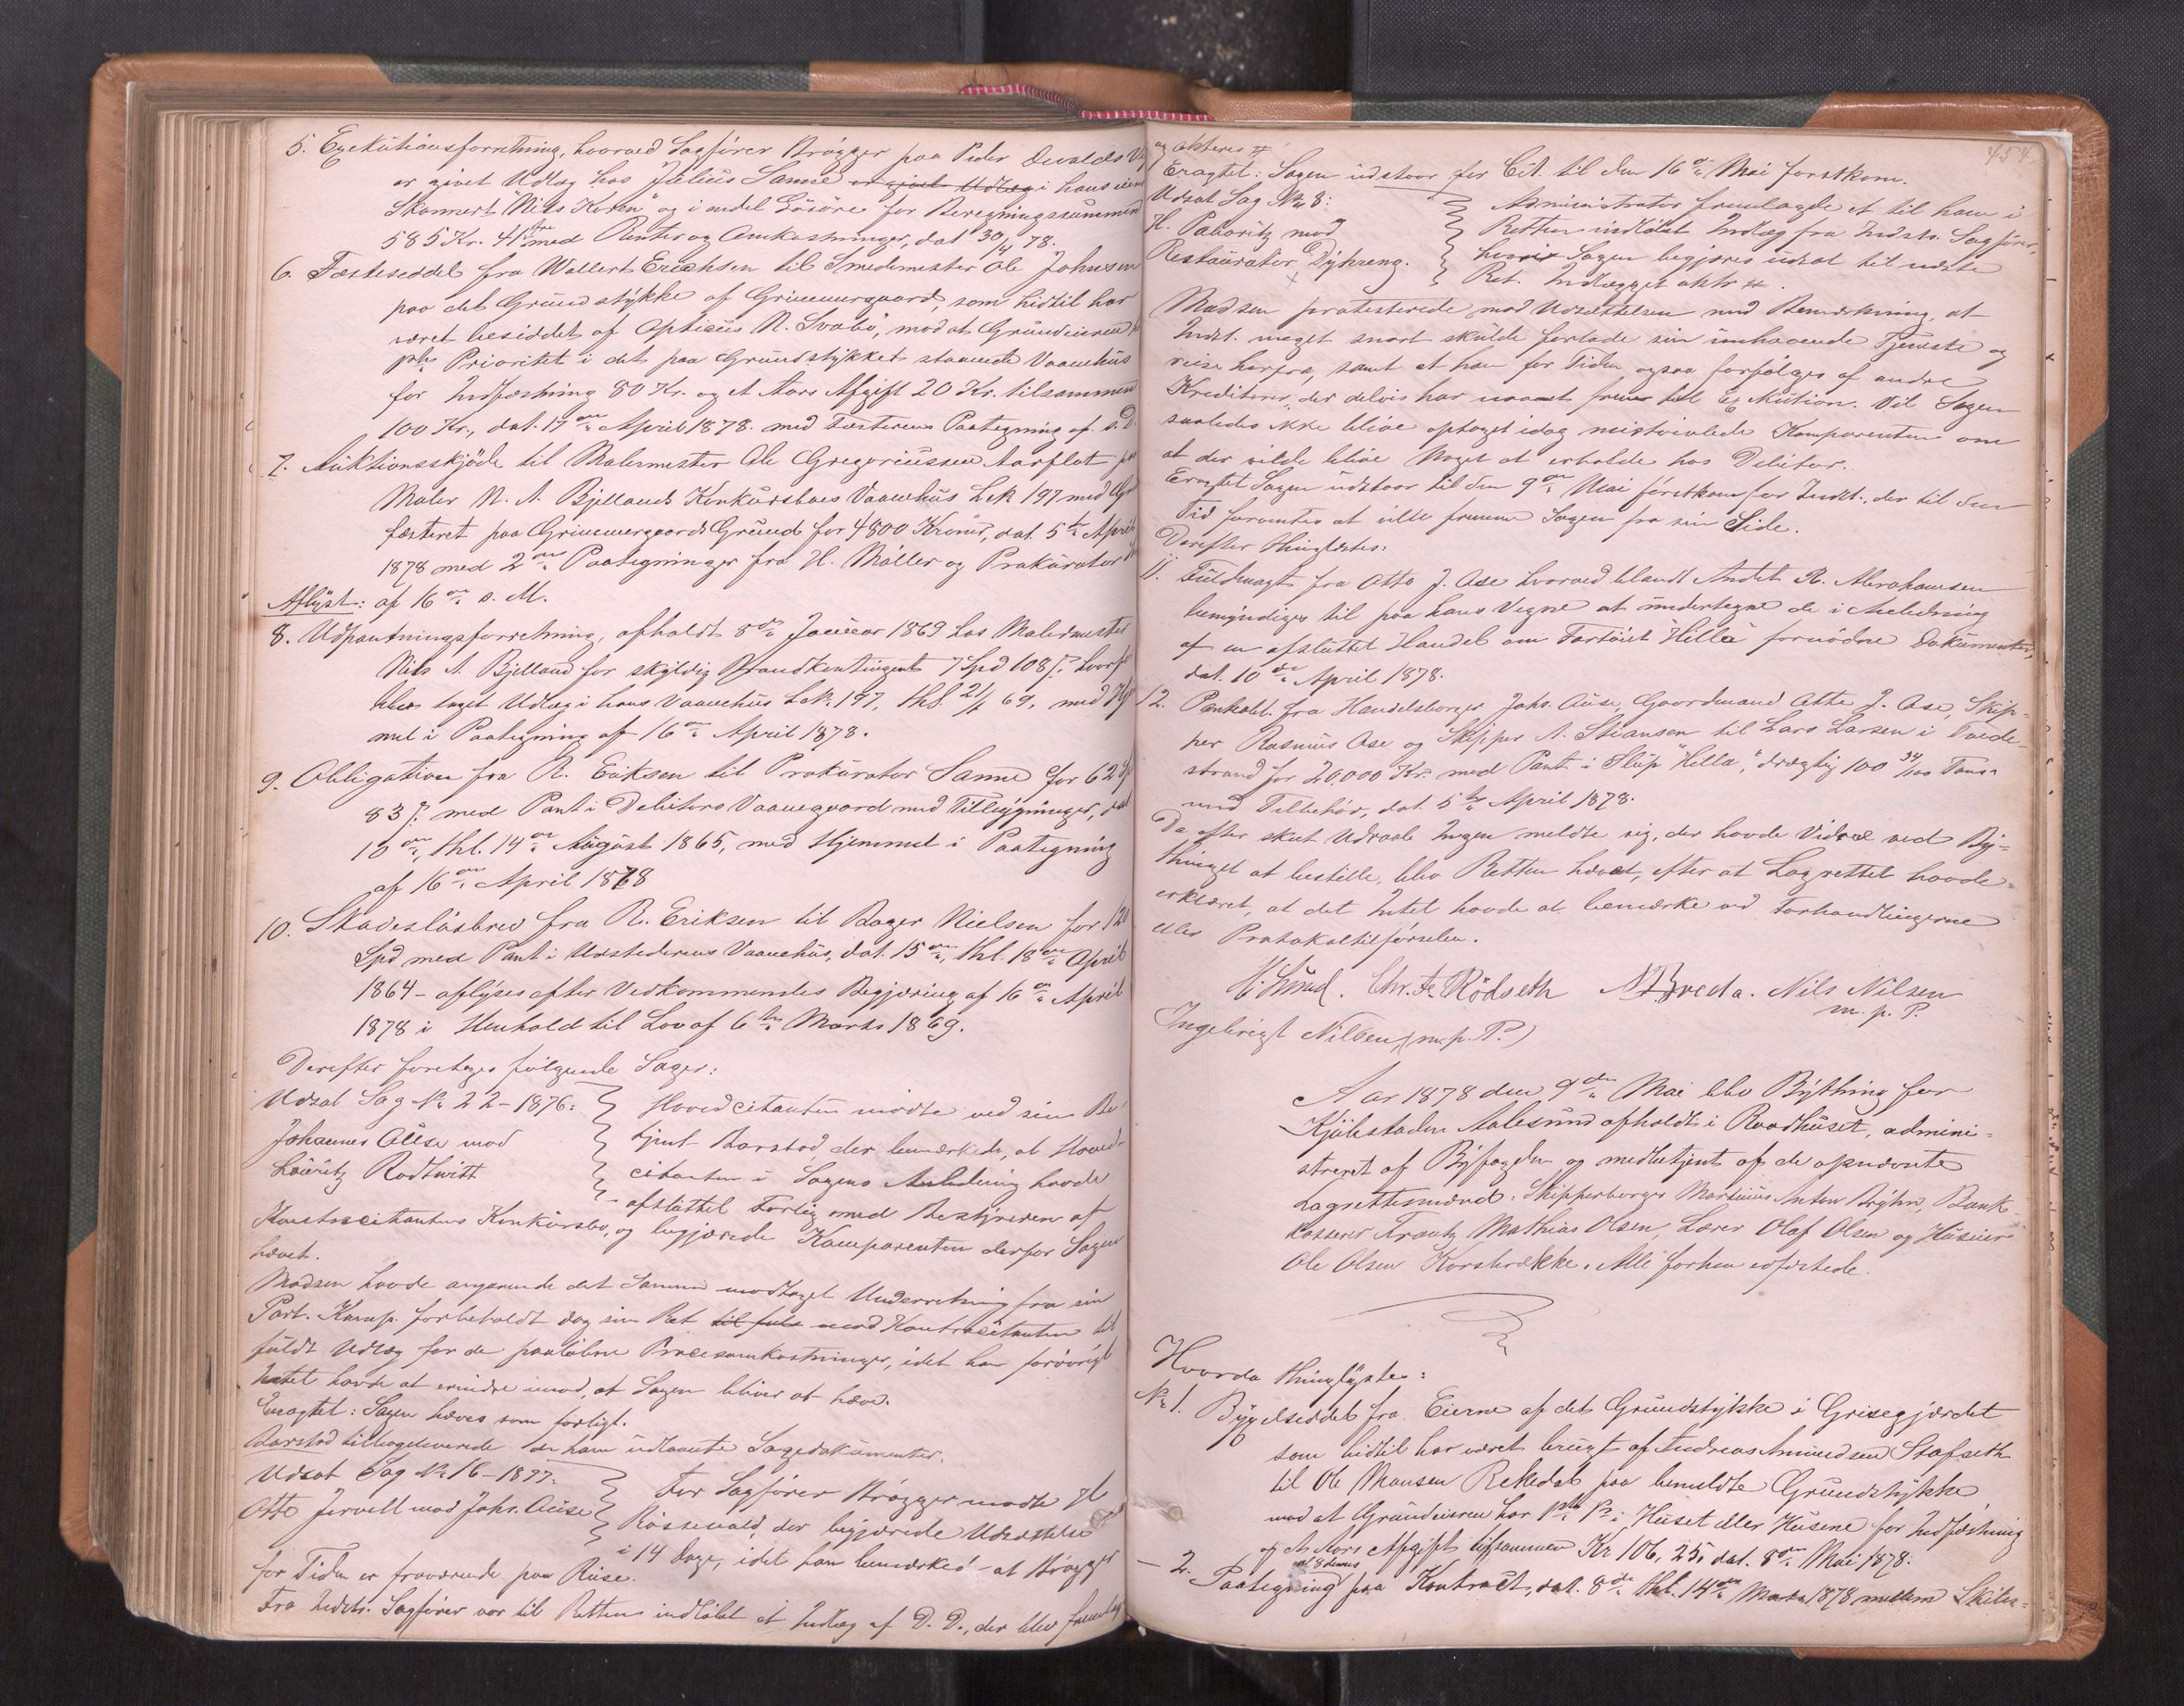 5. Exekutionsforretning, hvorved Sagfører Brøgger paa Peder Ewalds
er givet Udlæg hos Julius Sanne er givet Udlæg i hans
Skonnert "Niels Koren" og i andel Løsøre for Beregningssummen
585 Kr. 41 Øre med Renter og Omkostninger, dat 30/4 78.
6. Fæsteseddel fra Wallert Erichsen til Smedemester Ole Johnsen
paa det Grundstykke af Grimmergaard, som hidtil har
været besiddet af Opticus N. Svabø, mod at Grundeieren
Prioritet i det paa Grundstykket staaende Vaanehus
for Indfæstning 80 Kr. og et Aars Afgift 20 Kr. tilsammen
100 Kr., dat. 17de April 1878. med Fæsterens Paategning af s. D.
7. Auktionsskjøde til Malermester Ole Gregoriussen Aarflot
Maler N. A. Bjellands Konkursboes Vaanehus Lek 197 med
fæsteret paa Grimmergaards Grund for 4800 Kroner, dat. 5te April
1878 med 2de Paategninger fra H. Møller og Prokurator
Aflyst: af 16de s. M.
8. Udpantningsforretning, afholdt 8de Januar 1869 hos Malermester
Nils A. Bjelland for skyldig Brandkontingent 7 Spd 108 ß. hvorfor
blev taget Udlæg i hans Vaanehus Lek 197, thl. 21/1 69, med Hjem-
mel i Paategning af 16de April 1878.
9. Obligation fra R. Eriksen til Prokurator Sanne for 62
83 ß. med Pant i Debitors Vaanegaard med Tilbygninger, dat
10de, thl. 14de August 1865, med Hjemmel i Paategning
af 16de April 1878
10. Skadesløsbrev fra R. Eriksen til Bager Nielsen for 120
Spd med Pant i Udstederens Vaanehus, dat. 15de, thl. 18de April
1864 - aflyses efter Vedkommendes Begjæring af 16de April
1878 i Henhold til Lov af 6te Marts 1869.
Derefter foretoges følgende Sager:
Udsat Sag No 22-1876: Hovedcitanten mødte ved sin Be-
Johannes Aüse mod tjent Barstad, der bemærkede, at Hoved-
Lauritz Rodtwitt citanten i Sagens Anledning havde
afsluttet Forlig med Bestyreren af
Kontracitantens Konkursbo, og begjærede Komparenten derfor Sagen
hævet.
Madsen havde angaaende det Samme modtaget Underretning fra sin
Part. Komp. forbeholdt dog sin Ret til fuld mod Kontracitanten til
fuldt Udlæg for de paaløbne Procesomkostninger, idet han forøvrigt
Intet havde at erindre imod, at Sagen bliver at hæve.
Eragtet: Sagen hæves som forligt.
Barstad tilbageleverede de ham udlaante Sagsdokumenter.
Udsat Sag No 16-1877: For Sagfører Brøgger mødte
Otto Jervell mod Johs. Aüse Røssevald, der begjærede Udsættelse
i 14 Dage, idet han bemærkede at Brøgger
for Tiden er fraværende paa Reise.
Fra Indst. Sagfører var til Retten indløbet et Indlæg af D. D., der blev fremlagt
454.
og akteres #
Eragtet: Sagen udstaar for Cit. til den 16de Mai førstkom.
Udsat Sag No 8: Administrator fremlagde et til ham i
H. Paboritz mod Retten indløbet Indlæg fra Indst. Sagfører,
Restauratør Dyhreng. hvori Sagen begjæres udsat til næste
Ret. Indlægget aktr #.
Madsen protesterede mod Udsættelsen med Bemærkning, at
Indst. meget snart skulde forlade sin inehavende Tjeneste og
reise herfra, samt at han for Tiden ogsaa forfølges af andre
Kreditorer, der delvis har naaet frem til Exekution. Vil Sagen
saaledes ikke blive optaget idag mistvivlede Komparenten om
at der vilde blive Noget at erholde hos Debitor.
Eragtet Sagen udstaar til den 9de Mai førstkom for Indst., der til den
Tid forventes at ville fremme Sagen fra sin Side.
Derefter thinglæstes:
11. Fuldmagt fra Otto J. Ose hvorved blandt Andet R. Abrahamsen
bemyndiges til paa hans Vegne at undertegne de i Anledning
af en afsluttet Handel om Fartøiet "Hilla" fornødne Dokumenter,
dat. 10de April 1878.
12. Panteobl. fra Handelsborger Johs. Aüse, Gaardmand Otte J. Ose, Skip-
per Rasmus Ose og Skipper A. Stiansen til Lars Larsen i Tvede-
strand for 20.000 Kr. med Pant i Slup "Hilla", drægtig 100 34/100 Tons.
med Tilbehør, dat. 5te April 1878.
Da efter skeet Udraab Ingen meldte sig, der havde Videre ved By-
thinget at bestille, blev Retten hævet, efter at Lagrettet havde
erklæret, at det Intet havde at bemærke ved Forhandlingerne
eller Protokoltilførselen.
Chr. Fr. Rødseth N Breda. Nils Nilsen
m. p. P.
Ingebrigt Nilsen, (m. p. P.)
Aar 1878 den 9de Mai blev Bything for
Kjøbstaden Aalesund afholdt i Raadhuset, admini-
streret af Byfogden og medbetjent af de opnævnte
Lagrettesmænd: Skipperborger Martinus Anton Bryhn, Bank-
kasserer Frantz Mathias Olsen, Lærer Olaf Olsen og Huseier
Ole Olsen Korsbrække. Alle forhen edfæstede.
Hvorda thinglystes:
No 1. Bygselseddel fra Eierne af det Grundstykke i Grisegjærdet
som hidtil har været brugt af Andreas Amundsen Stafseth
til Ole Monsen Rekedal paa bemeldte Grundstykke
mod at Grundeieren har 1ste Pr. i Huset eller Husene for Indfæstning
og et Aars Afgift tilsammen Kr 106, 25, dat. 8de Mai 1878.
af 8 dennes
- 2. Paategning paa Kontract, dat. 8de thl. 14de Marts 1878 mellem